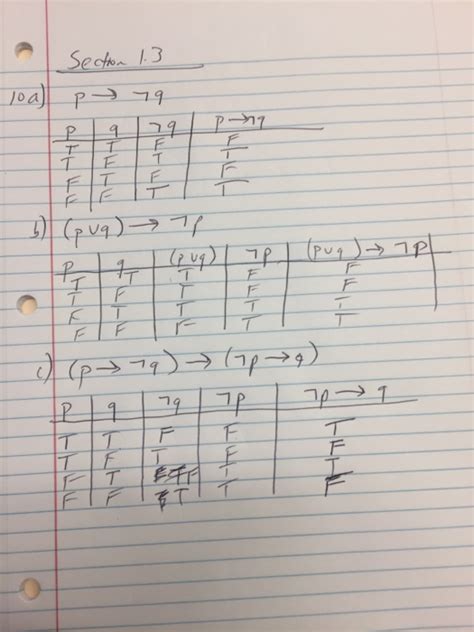 Section 1.3
10a) p → ¬q
p q ¬q p→¬q
T T F F
T F T T
F T F F
F F T T
b) (p∨q) → ¬p
p q (p∨q) ¬p (p∨q) → ¬p
T T T F F
T F T F F
F T T T T
F F F T T
c) (p → ¬q) → (¬p → q)
p q ¬q ¬p ¬p → q
T T F F T
T F T F F
F T F T T
F F T T F